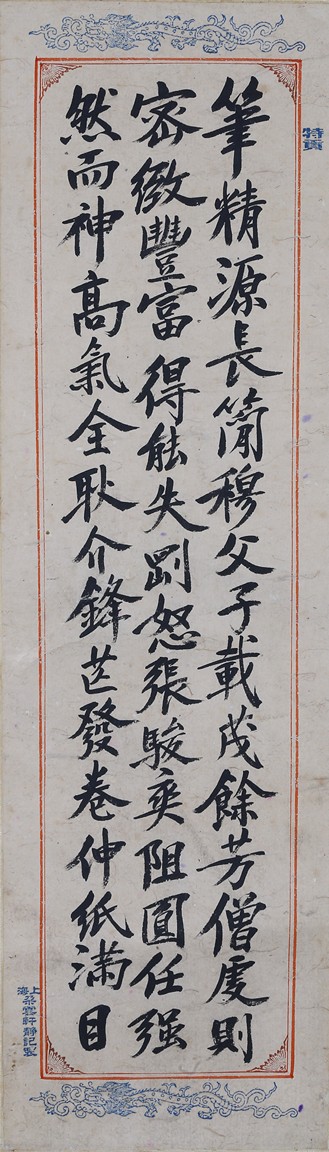 筆精源長簡穆父子載茂餘芳僧虔則
密緻豐富得能失剛怒張駿爽阻圓任強
然而神高氣全耿介鋒芒發卷伸紙滿目
特貢
上海朵雲軒靜記製